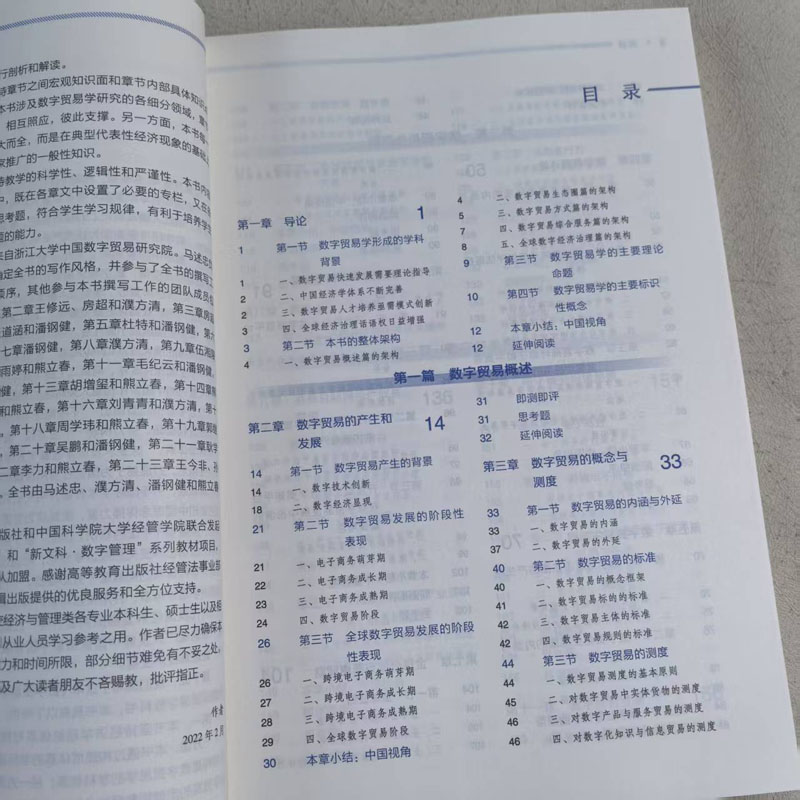 行剖析和解读。
章节之间宏观知识面和章节内部具体知识
本书涉及数字贸易学研究的各细分领域，
相互照应，彼此支撑。另一方面，本书
大而全，而是在典型代表性经济现象的基础
推广的一般性知识。
教学的科学性、逻辑性和严谨性。本书内
中，既在各章文中设置了必要的专栏，又在
思考题，符合学生学习规律，有利于培养学
的能力。
来自浙江大学中国数字贸易研究院。马述忠
确定全书的写作风格，并参与了全书的撰写
顺序，其他参与本书撰写工作的团队成员
第二章王修远、房超和濮方清，第三章房
道涵和潘钢健，第五章杜特和潘钢健，第六
七章潘钢健，第八章濮方清，第九章伍湘
雨婷和熊立春，第十一章毛纪云和潘钢健，
，第十三章胡增玺和熊立春，第十四章熊
和熊立春，第十六章刘青青和濮方清，第
，第十八章周学玮和熊立春，第十九章郭
二十章吴鹏和潘钢健，第二十一章耿
章李力和熊立春，第二十三章王今非、张
全书由马述忠、濮方清、潘钢健和熊立春
版社和中国科学院大学经管学院联合发起
和“新文科·数字管理”系列教材项目，
加盟。感谢高等教育出版社经管法事业部
辑出版提供的优良服务和全方位支持。
经济与管理类各专业本科生、硕士生以及
从业人员学习参考之用。作者已尽力确保本
力和时间所限，部分细节难免有不妥之处，
及广大读者朋友不吝赐教，批评指正。
作者
2022 年 2 月
目 录
第一章 导论 1
1 第一节 数字贸易学形成的学科
背景
1 一、数字贸易快速发展需要理论指导
2 二、中国经济学体系不断完善
2 三、数字贸易人才培养亟需模式创新
3 四、全球经济治理话语权日益增强
3 第二节 本书的整体架构
4 一、数字贸易概述篇的架构
4 二、数字贸易生态圈篇的架构
5 三、数字贸易方式篇的架构
7 四、数字贸易综合服务篇的架构
8 五、全球数字经济治理篇的架构
9 第三节 数字贸易学的主要理论
命题
10 第四节 数字贸易学的主要标识
性概念
12 本章小结：中国视角
12 延伸阅读
第一篇 数字贸易概述
第二章 数字贸易的产生和
发展 14
14 第一节 数字贸易产生的背景
14 一、数字技术创新
18 二、数字经济显现
21 第二节 数字贸易发展的阶段性
表现
21 一、电子商务萌芽期
22 二、电子商务成长期
23 三、电子商务成熟期
24 四、数字贸易阶段
26 第三节 全球数字贸易发展的阶段
性表现
26 一、跨境电子商务萌芽期
27 二、跨境电子商务成长期
28 三、跨境电子商务成熟期
29 四、全球数字贸易阶段
30 本章小结：中国视角
31 即测即评
31 思考题
32 延伸阅读
第三章 数字贸易的概念与
测度 33
33 第一节 数字贸易的内涵与外延
33 一、数字贸易的内涵
37 二、数字贸易的外延
40 第二节 数字贸易的标准
40 一、数字贸易的概念框架
41 二、数字贸易标的的标准
42 三、数字贸易主体的标准
42 四、数字贸易规则的标准
44 第三节 数字贸易的测度
44 一、数字贸易测度的基本原则
45 二、对数字贸易中实体货物的测度
46 三、对数字产品与服务贸易的测度
46 四、对数字化知识与信息贸易的测度